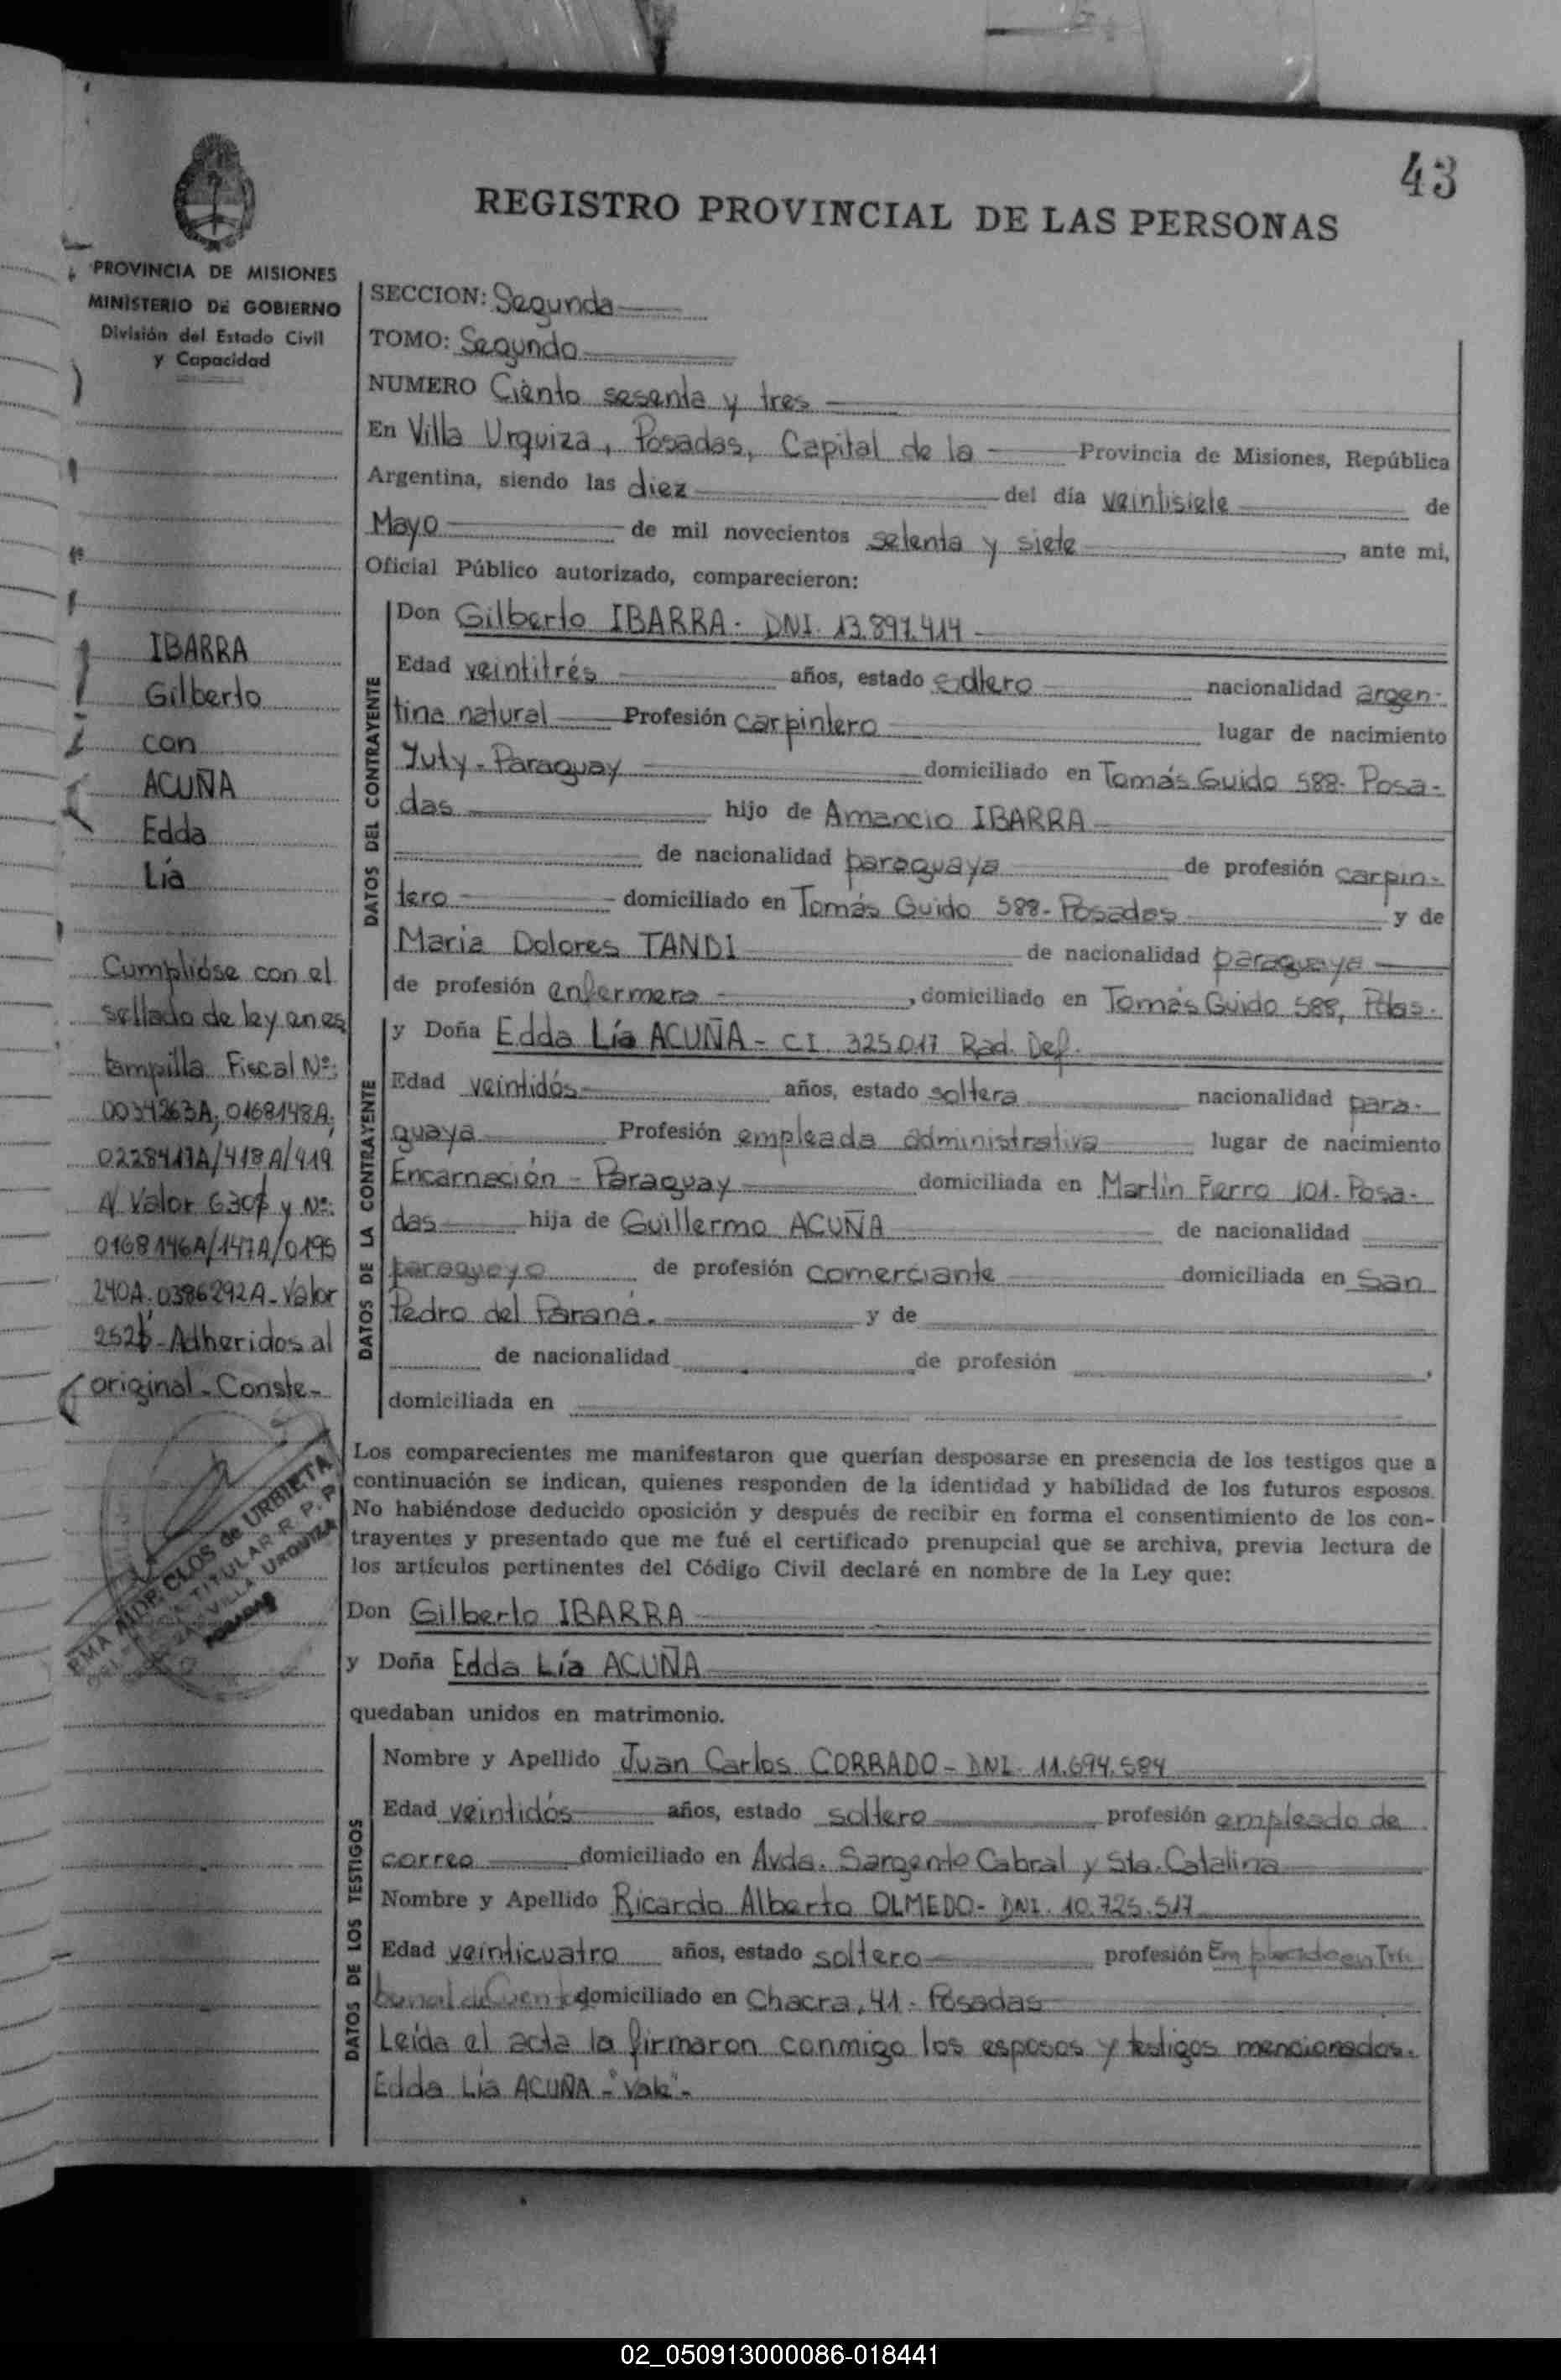 43
REGISTRO PROVINCIAL DE LAS PERSONAS
PROVINCIA DE MISIONES
MINISTERIO DE GOBIERNO
División del Estado Civil
y Capacidad
IBARRA
Gilberto
con
ACUÑA
Edda
Lía
Cumplióse con el
sellado de ley en es
tampilla Fiscal Nº:
0034263A; 0168148A;
0228417A/418A/419
A/ Valor 630$ y Nº:
0168146A/147A/0195
240A; 0386292A - Valor
252$ - Adheridos al
original - Conste -
EMA AIDE CLOS de URBIETA
TITULAR R. P. P.
VILLA URQUIZA
POSADAS
SECCION: Segunda
TOMO: Segundo
NUMERO Ciento sesenta y tres
En Villa Urquiza, Posadas, Capital de la Provincia de Misiones, República
Argentina, siendo las diez del día veintisiete de
Mayo de mil novecientos setenta y siete, ante mi,
Oficial Público autorizado, comparecieron:
DATOS DEL CONTRAYENTE
Don Gilberto IBARRA - DNI. 13.897.414
Edad veintitrés años, estado soltero nacionalidad argen-
tina natural Profesión carpintero lugar de nacimiento
Yuty - Paraguay domiciliado en Tomás Guido 588 - Posa-
das hijo de Amancio IBARRA
de nacionalidad paraguaya de profesión carpin-
tero domiciliado en Tomás Guido 588 - Posadas y de
Maria Dolores TANDI de nacionalidad paraguaya
de profesión enfermera, domiciliado en Tomás Guido 588, Pdas.
DATOS DE LA CONTRAYENTE
y Doña Edda Lía ACUÑA - CI. 325.017 Rad. Def.
Edad veintidós años, estado soltera nacionalidad para-
guaya Profesión empleada administrativa lugar de nacimiento
Encarnación - Paraguay domiciliada en Martín Fierro 101 - Posa-
das hija de Guillermo ACUÑA de nacionalidad
paraguayo de profesión comerciante domiciliada en San
Pedro del Paraná. y de
de nacionalidad de profesión ,
domiciliada en
Los comparecientes me manifestaron que querían desposarse en presencia de los testigos que a
continuación se indican, quienes responden de la identidad y habilidad de los futuros esposos.
No habiéndose deducido oposición y después de recibir en forma el consentimiento de los con-
trayentes y presentado que me fué el certificado prenupcial que se archiva, previa lectura de
los artículos pertinentes del Código Civil declaré en nombre de la Ley que:
Don Gilberto IBARRA
y Doña Edda Lía ACUÑA
quedaban unidos en matrimonio.
DATOS DE LOS TESTIGOS
Nombre y Apellido Juan Carlos CORRADO - DNI. 11.694.584
Edad veintidós años, estado soltero profesión empleado de
correo domiciliado en Avda. Sargento Cabral y Sta. Catalina
Nombre y Apellido Ricardo Alberto OLMEDO - DNI. 10.725.517
Edad veinticuatro años, estado soltero profesión Empleado en Tri
bunal de Cuentas domiciliado en Chacra, 41 - Posadas
Leída el acta la firmaron conmigo los esposos y testigos mencionados.
Edda Lía ACUÑA - "Vale" -
02_050913000086-018441